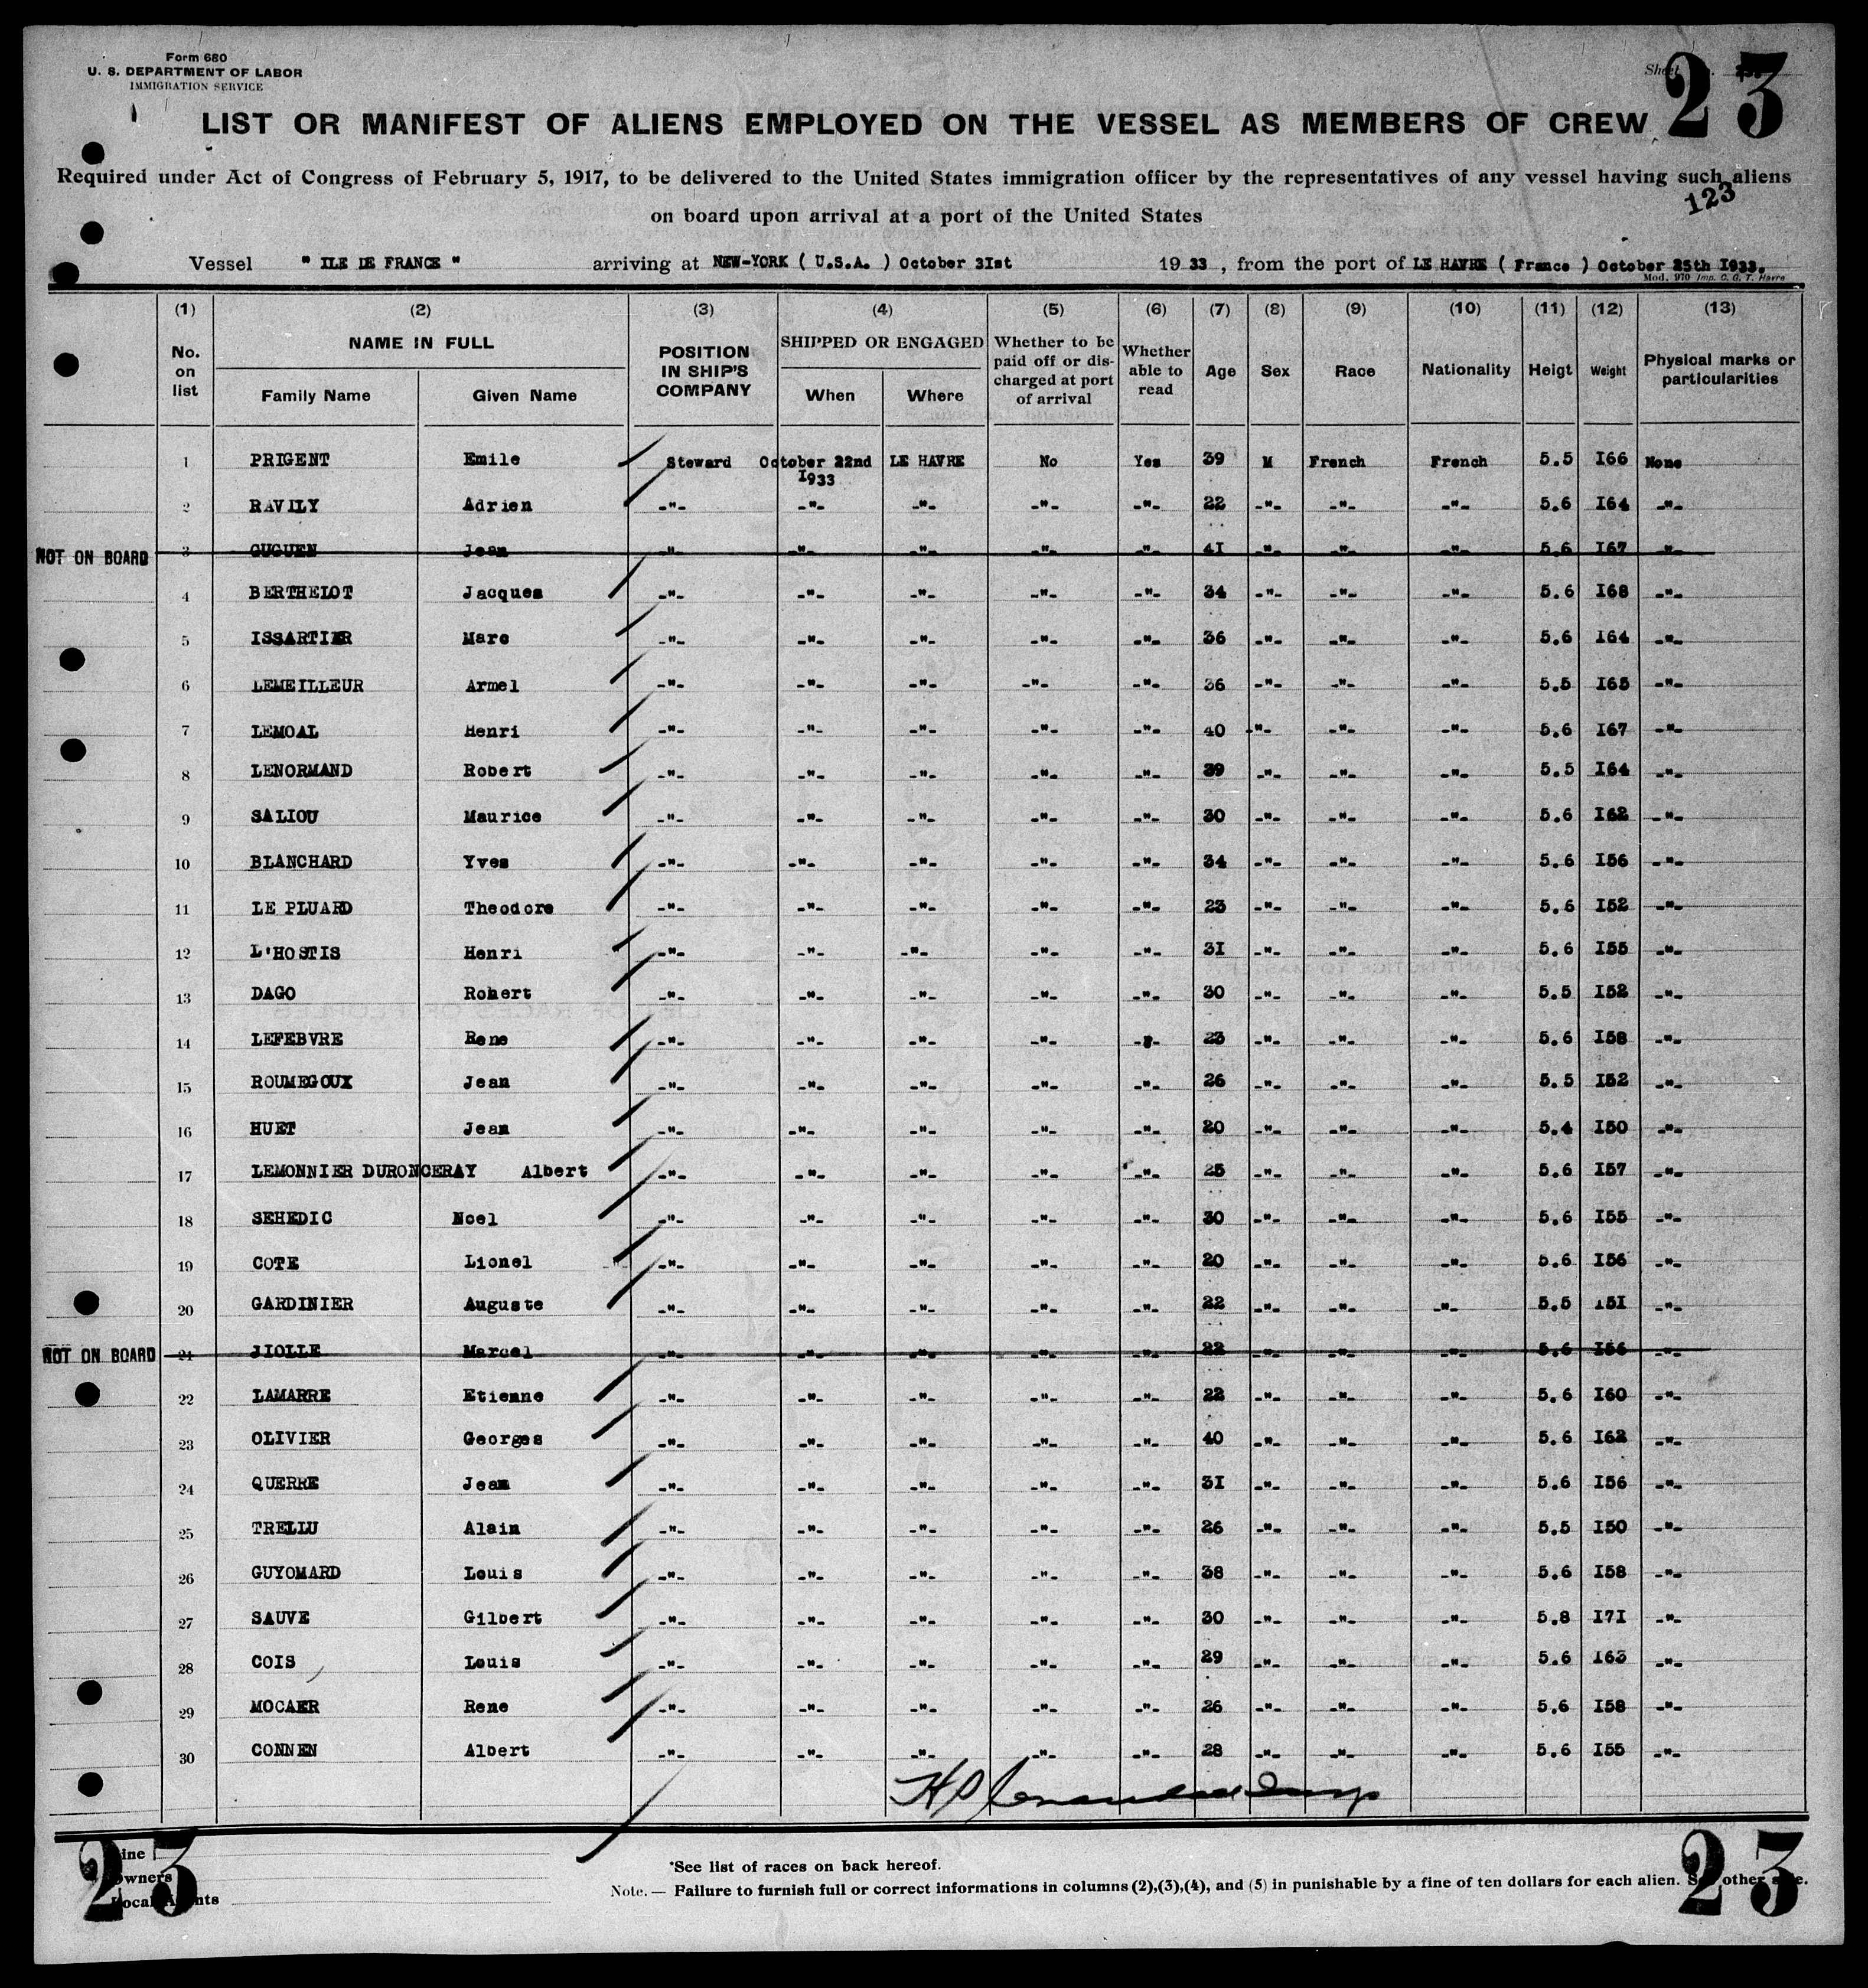 Form 680
U. S. DEPARTMENT OF LABOR
IMMIGRATION SERVICE
Sheet
23
LIST OR MANIFEST OF ALIENS EMPLOYED ON THE VESSEL AS MEMBERS OF CREW
Required under Act of Congress of February 5, 1917, to be delivered to the United States immigration officer by the representatives of any vessel having such aliens
on board upon arrival at a port of the United States
123
Vessel " ILE DE FRANCE " arriving at NEW-YORK ( U.S.A. ) October 3Ist 19 33 , from the port of LE HAVRE ( France ) October 25th I933.
Mod. 970 Imp. C. G. T. Havre
(1) (2) (3) (4) (5) (6) (7) (8) (9) (10) (11) (12) (13)
No. on list NAME IN FULL Family Name Given Name POSITION IN SHIP'S COMPANY SHIPPED OR ENGAGED When Where Whether to be paid off or dis- charged at port of arrival Whether able to read Age Sex Race Nationality Heigt Weight Physical marks or particularities
1 PRIGENT Emile Steward October 22nd I933 LE HAVRE No Yes 39 M French French 5.5 I66 None
2 RAVILY Adrien -"- -"- -"- -"- -"- 22 -"- -"- -"- 5.6 I64 -"-
NOT ON BOARD 3 GUGUEN Jean -"- -"- -"- -"- -"- 4I -"- -"- -"- 5.6 I67 -"-
4 BERTHELOT Jacques -"- -"- -"- -"- -"- 34 -"- -"- -"- 5.6 I68 -"-
5 ISSARTIER Marc -"- -"- -"- -"- -"- 36 -"- -"- -"- 5.6 I64 -"-
6 LEMEILLEUR Armel -"- -"- -"- -"- -"- 36 -"- -"- -"- 5.5 I65 -"-
7 LEMOAL Henri -"- -"- -"- -"- -"- 40 -"- -"- -"- 5.6 I67 -"-
8 LENORMAND Robert -"- -"- -"- -"- -"- 39 -"- -"- -"- 5.5 I64 -"-
9 SALIOU Maurice -"- -"- -"- -"- -"- 30 -"- -"- -"- 5.6 I62 -"-
10 BLANCHARD Yves -"- -"- -"- -"- -"- 34 -"- -"- -"- 5.6 I56 -"-
11 LE PLUARD Theodore -"- -"- -"- -"- -"- 23 -"- -"- -"- 5.6 I52 -"-
12 L'HOSTIS Henri -"- -"- -"- -"- -"- 3I -"- -"- -"- 5.6 I55 -"-
13 DAGO Robert -"- -"- -"- -"- -"- 30 -"- -"- -"- 5.5 I52 -"-
14 LEFEBVRE Rene -"- -"- -"- -"- -"- 23 -"- -"- -"- 5.6 I58 -"-
15 ROUMEGOUX Jean -"- -"- -"- -"- -"- 26 -"- -"- -"- 5.5 I52 -"-
16 HUET Jean -"- -"- -"- -"- -"- 20 -"- -"- -"- 5.4 I50 -"-
17 LEMONNIER DURONCERAY Albert -"- -"- -"- -"- -"- 25 -"- -"- -"- 5.6 I57 -"-
18 SEHEDIC Noel -"- -"- -"- -"- -"- 30 -"- -"- -"- 5.6 I55 -"-
19 COTE Lionel -"- -"- -"- -"- -"- 20 -"- -"- -"- 5.6 I56 -"-
20 GARDINIER Auguste -"- -"- -"- -"- -"- 22 -"- -"- -"- 5.5 I5I -"-
NOT ON BOARD 21 JIOLLE Marcel -"- -"- -"- -"- -"- 22 -"- -"- -"- 5.6 I56 -"-
22 LAMARRE Etienne -"- -"- -"- -"- -"- 22 -"- -"- -"- 5.6 I60 -"-
23 OLIVIER Georges -"- -"- -"- -"- -"- 40 -"- -"- -"- 5.6 I62 -"-
24 QUERRE Jean -"- -"- -"- -"- -"- 3I -"- -"- -"- 5.6 I56 -"-
25 TRELLU Alain -"- -"- -"- -"- -"- 26 -"- -"- -"- 5.5 I50 -"-
26 GUYOMARD Louis -"- -"- -"- -"- -"- 38 -"- -"- -"- 5.6 I58 -"-
27 SAUVE Gilbert -"- -"- -"- -"- -"- 30 -"- -"- -"- 5.8 I7I -"-
28 COIS Louis -"- -"- -"- -"- -"- 29 -"- -"- -"- 5.6 I63 -"-
29 MOCAER Rene -"- -"- -"- -"- -"- 26 -"- -"- -"- 5.6 I58 -"-
30 CONNEN Albert -"- -"- -"- -"- -"- 28 -"- -"- -"- 5.6 I55 -"-
23
Line
Owners
Local Agents
*See list of races on back hereof.
Note. — Failure to furnish full or correct informations in columns (2),(3),(4), and (5) in punishable by a fine of ten dollars for each alien. See other side.
23